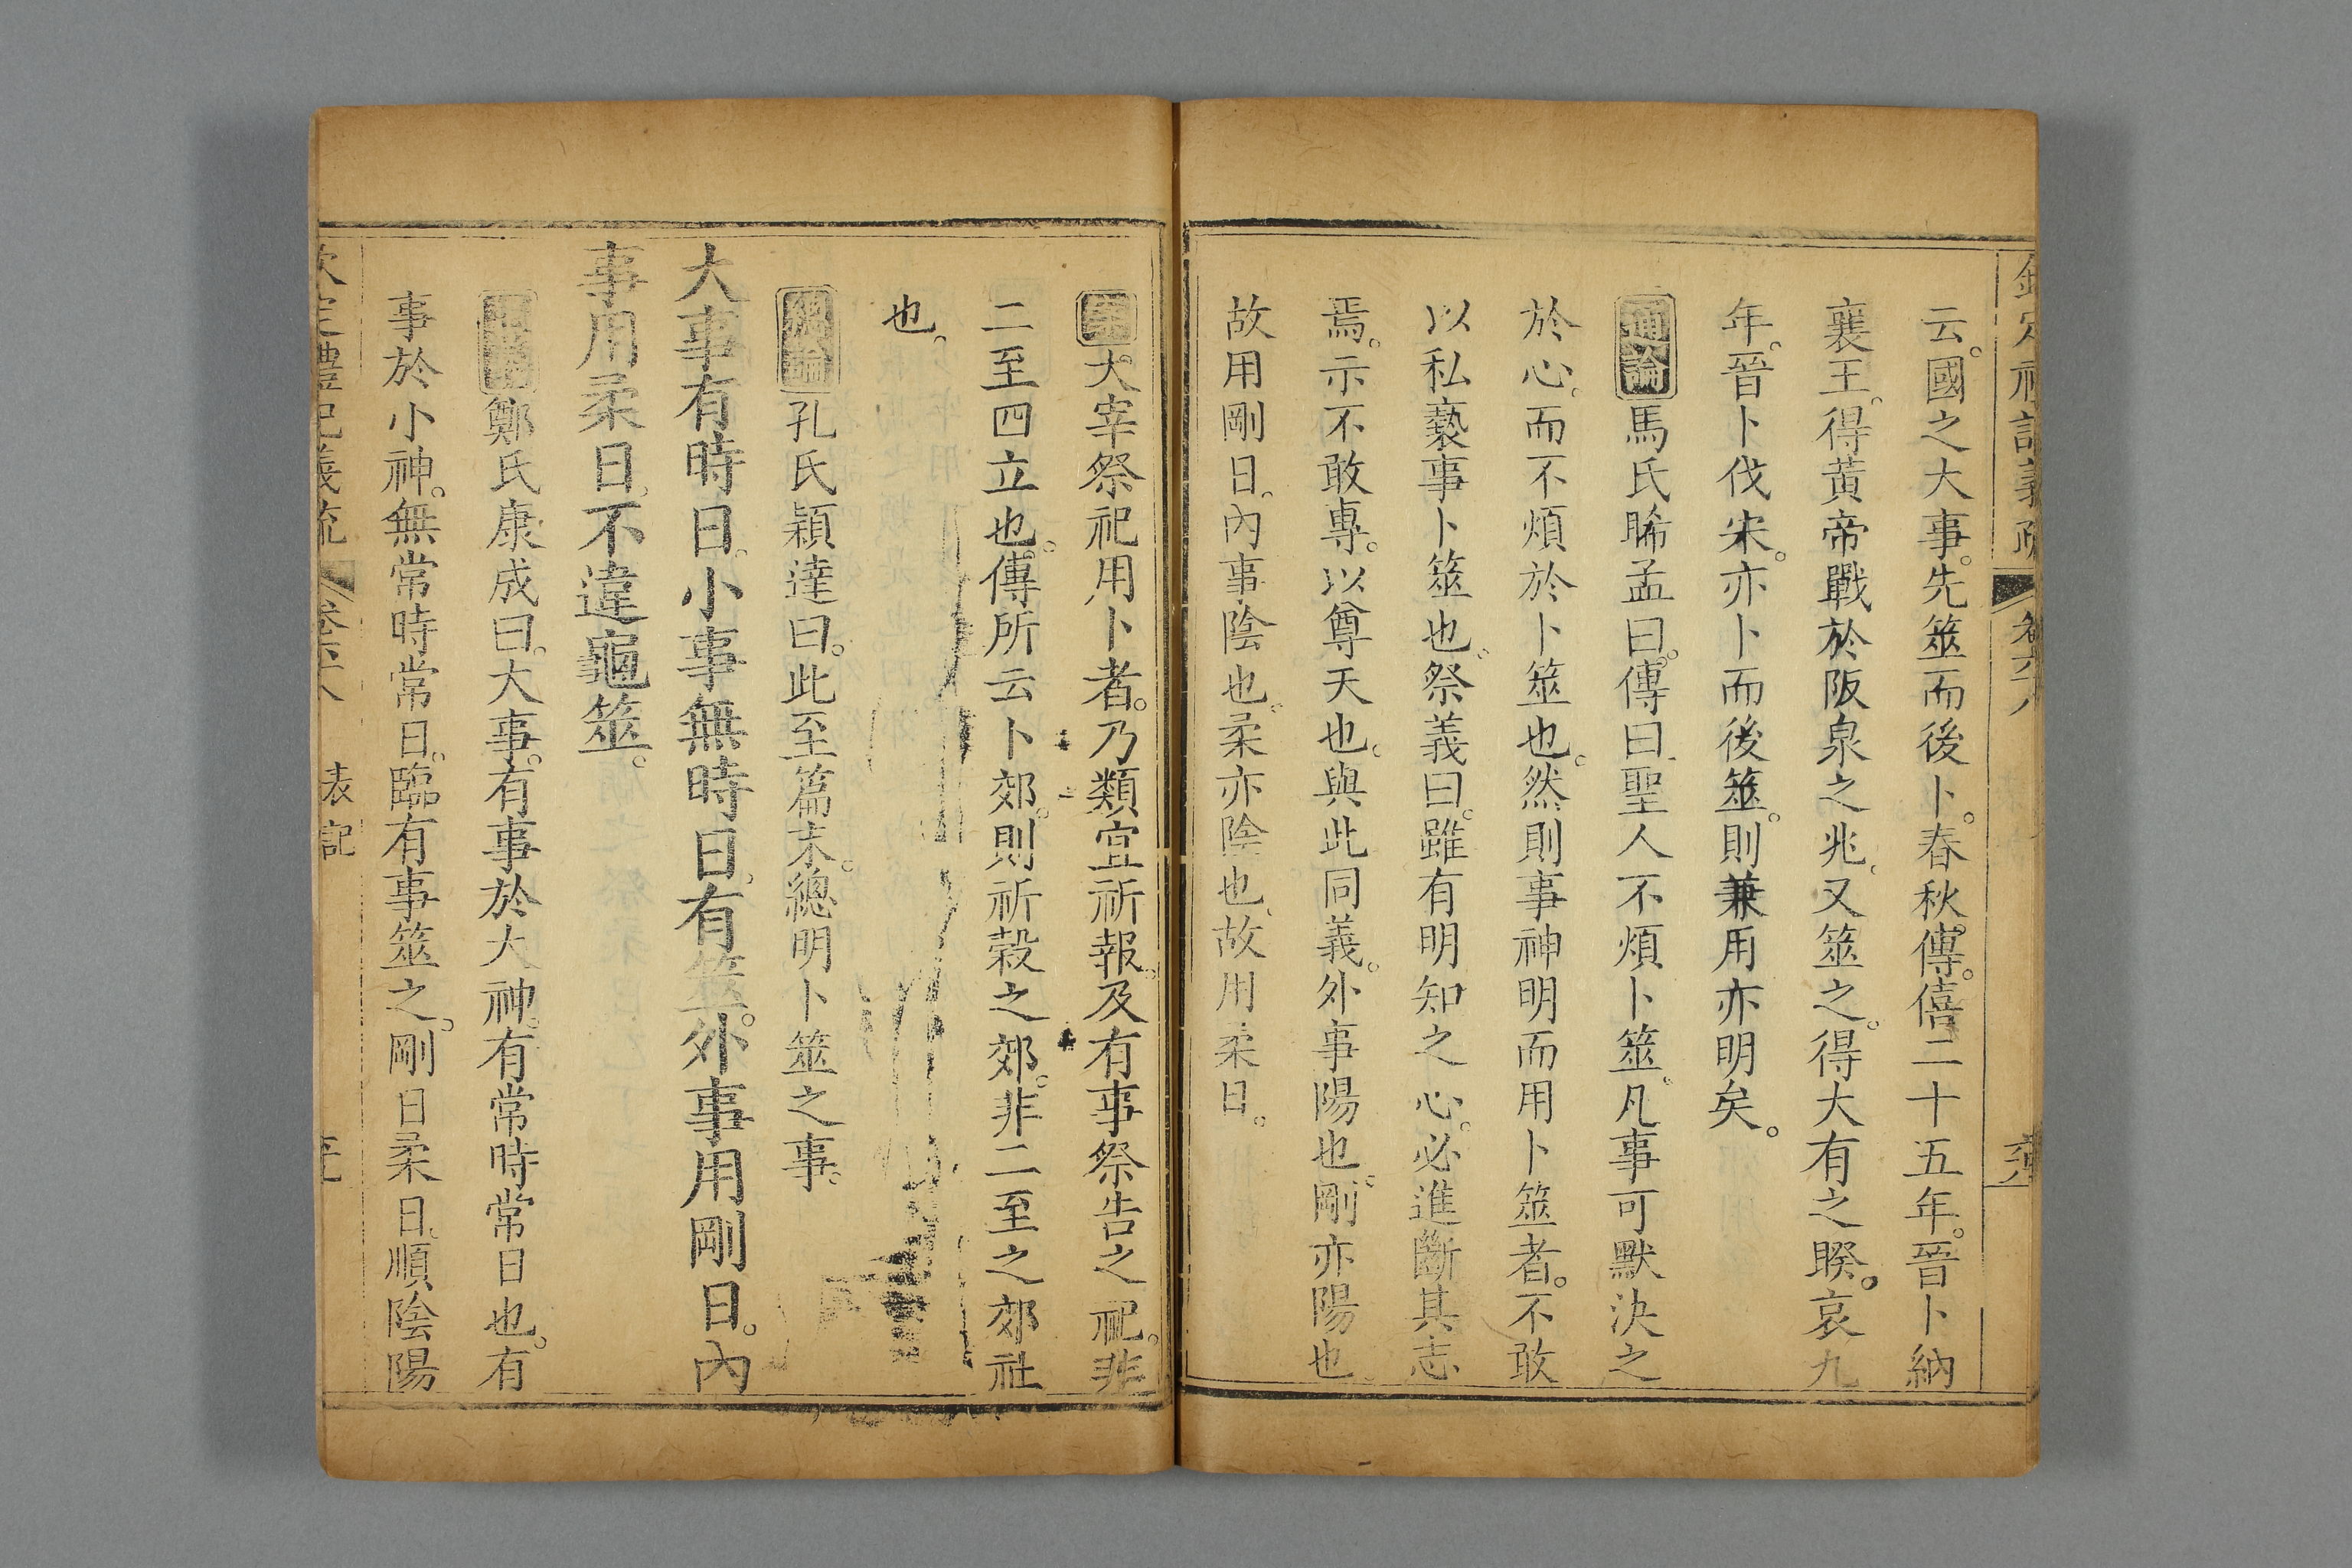 欽定禮記義疏 卷六十八
云。國之大事。先筮而後卜。春秋傳。僖二十五年。晉卜納
襄王。得黃帝戰於阪泉之兆。又筮之。得大有之睽。哀九
年。晉卜伐宋。亦卜而後筮。則兼用亦明矣。
通論馬氏晞孟曰。傳曰。聖人不煩卜筮。凡事可默決之
於心。而不煩於卜筮也。然則事神明而用卜筮者。不敢
以私褻事卜筮也。祭義曰。雖有明知之心。必進斷其志
焉。示不敢專。以尊天也。與此同義。外事陽也。剛亦陽也
故用剛日。內事陰也。柔亦陰也。故用柔日。
案大宰祭祀用卜者。乃類宜祈報。及有事祭告之祀。非
二至四立也。傳所云卜郊。則祈穀之郊。非二至之郊社
也。
總論孔氏穎達曰。此至篇末。總明卜筮之事。
大事有時日。小事無時日。有筮。外事用剛日。內
事用柔日。不違龜筮。
鄭氏康成曰。大事。有事於大神。有常時常日也。有
事於小神。無常時常日。臨有事筮之。剛日柔日。順陰陽
欽定禮記義疏 卷六十八 表記